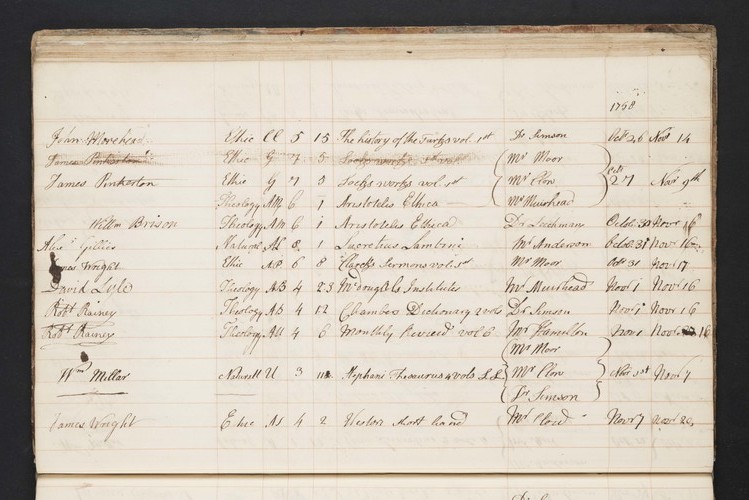 1758
John Morehead Ethic CC 5 15 The history of the Turks vol. 1st Dr Simson Octr 26 Novr 14
James Pinkerton Ethic G 7 5 Mr Moor
James Pinkerton Ethic G 7 5 Locks works vol. 1st Mr Clow Octr 27 Novr 9th
Theology AM 6 1 Aristotelis Ethica Mr Muirhead
Willm Brison Theology AM 6 1 Aristotelis Ethica Dr Leechman Octobr 30 Novr
Alexr Gillies Natural 8 1 Lucretius Lambini Mr Anderson Octobr 31 Novr 16
James Wright Ethic AP 6 8 Clarks Sermons vol. 1st Mr Moor Octr 31 Novr 17
David Lyle Theology AB 4 23 Institutes Mr Muirhead Novr 1 Novr 16
Robt Rainey Theology 4 12 Chambers Dictionary 2 vols Dr Simson Novr 1 Novr 16
Robt Rainey Theology 4 6 Monthly Review vol 6 Mr Hamilton Novr 1 Novr 16
Mr Moor
Wm Millar Naturall U 3 Stephani Thesaurus 4 vols Mr Clow Novr 1st Novr 7
Dr Simson
James Wright Ethic As 4 2 Weston short hand Mr Clow Novr 7 Novr